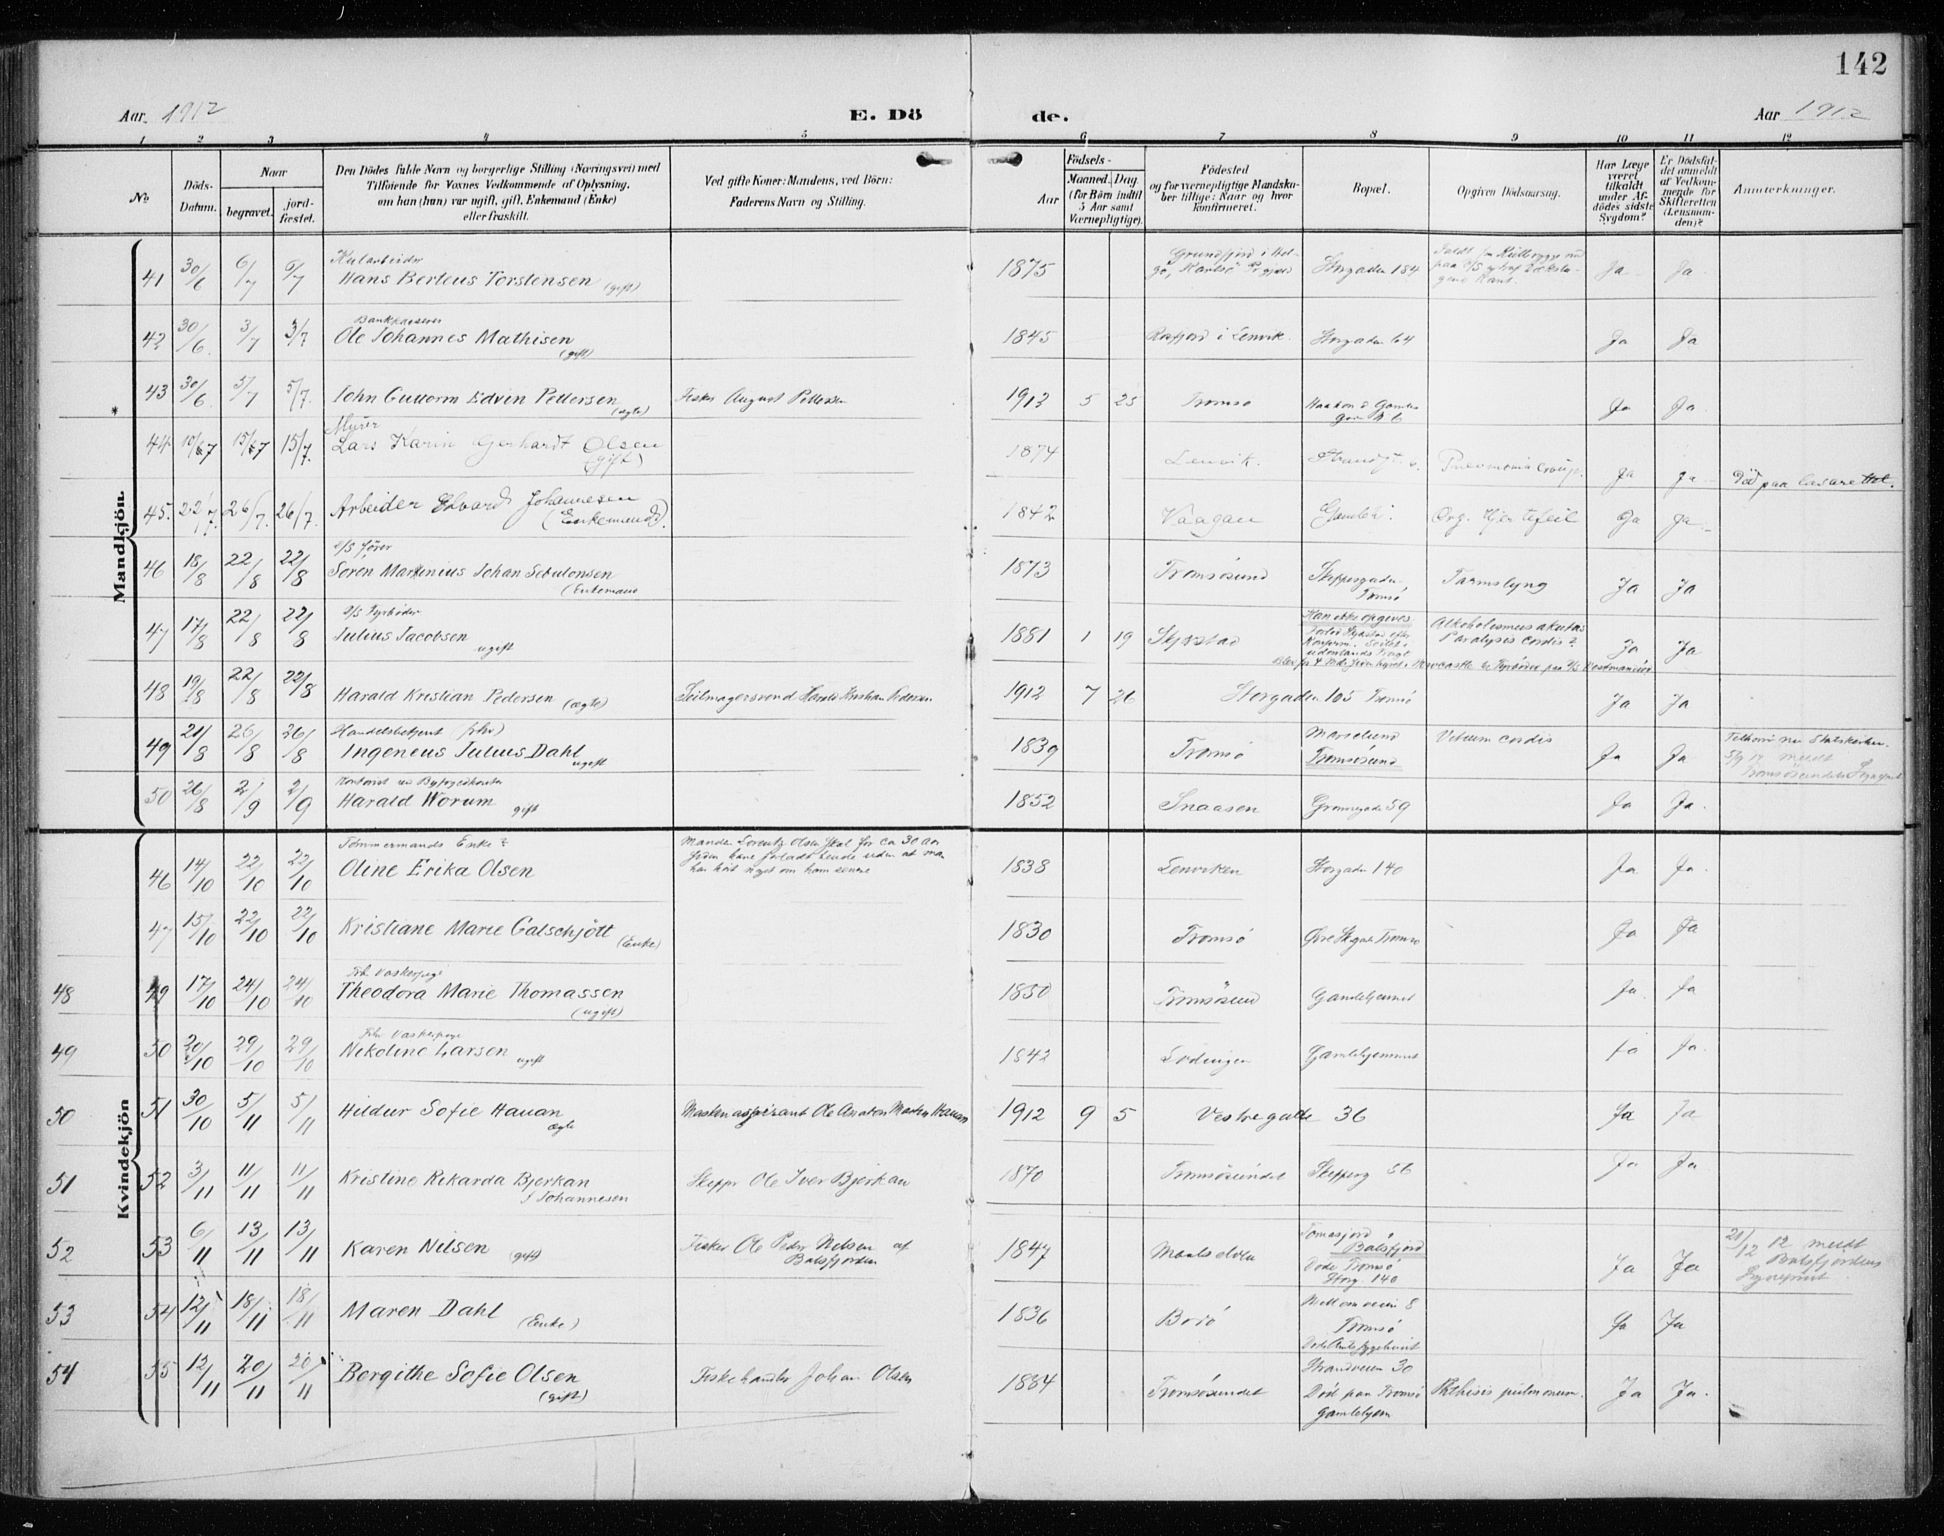 142
Aar 1912 E. Dö de. Aar 1912
1 2 3 4 5 6 7 8 9 10 11 12
No
Döds-Datum.
Naar
begravet.
jordfæstet.
Den Dödes fulde Navn og borgerlige Stilling (Næringsvei) med
Tilföiende for Voxnes Vedkommende af Oplysning,
om han (hun) var ugift, gift, Enkemand (Enke)
eller fraskilt.
Ved gifte Koner: Mandens, ved Börn:
Faderens Navn og Stilling.
Födsels-
Aar
Maaned. Dag.
(for Börn indtil
5 Aar samt
Værnepligtige).
Födested
og for værnepligtige Mandskaber tillige: Naar og hvor
konfirmeret.
Bopæl.
Opgiven Dödsaarsag.
Har Læge
været
tilkaldt
under Afdödes sidste
Sygdom?
Er Dödsfaldet anmeldt
af Vedkommende for
Skifteretten
(Lensmanden)?
Anmerkninger.
Mandkjön.
41 30/6 6/7 6/7 Kularbeider
Hans Berteus Torstensen (gift) 1875 Grundfjord i Hel-
gö, Karlsö Storgaden 184 Ja Ja
42 30/6 3/7 3/7 Bankkasserer
Ole Johannes Mathisen (gift) 1845 Rosfjord i Lenvik. Storgaden 64 Ja Ja
43 30/6 5/7 5/7. John Guttorm Edvin Pettersen (ægte) Fisker August Pettersen 1912 5 23 Tromsö Ja Ja
44 10/7 15/7 15/7. Murer
Lars Karin Gerhardt Olsen
(gift) 1874 Lenvik. Pneumonia Croup. Ja Ja Död paa lasarettet.
45. 22/7. 26/7. 26/7. Arbeider Edvard Johannesen
(Enkemand). 1842 Vaagan Org. Hjertefeil Ja Ja
46 18/8 22/8 22/8 D/S förer
Sören Martinius Johan Sebulonsen
(Enkemand 1873 Tromsösund Skippergaden
Tromsö Tarmslyng Ja Ja
47 17/8 22/8 22/8 D/S Fyrböder
Julius Jacobsen
ugift 1881 1 19 Skjærstad Kan ikke opgives
Alkoholismus akutus
Paralysis cordis? Ja Ja
48 19/8 22/8 22/8 Harald Kristian Pedersen (ægte) Seilmagersvend Harald Kristian Pedersen 1912 7 26 Storgaden 105 Tromsö Ja Ja
49 21/8 26/8 26/8 Handelsbetjent (fhv)
Ingeneus Julius Dahl
ugift 1839 Tromsö
Tromsösund Vitium cordis Ja Ja
50 26/8 2/9 2/9 Kontorist
Harald Worum gift 1852 Snaasen Grönnegade 59 Ja Ja.
Kvindekjön
46 14/10 22/10 22/10 Tömmermands Enke?
Oline Erika Olsen Manden Lorentz Olsen skal for ca 30 aar
siden have forladt hende uden at man
har hört noget om ham senere 1838 Lenviken Storgaden 140 Ja Ja
47 15/10 22/10 22/10 Kristiane Marie Galschjött (Enke) 1830 Tromsö Tromsö Ja Ja
48 49 17/10 24/10 24/10 Fhv. Vaskepige
Theodora Marie Thomassen
(ugift) 1850 Tromsösund Gamlehjemmet Ja Ja
49 50 20/10 29/10 29/10 Fhv Vaskepige
Nikoline Larsen ugift 1842 Lödingen Gamlehjemmet Ja Ja
50 51 30/10 5/11 5/11 Hildur Sofie Hauan
ægte Maskinaspirant Ole Anaton Martin Hauan 1912 9 5 Vestregade 36 Ja Ja
51 52 3/11 11/11 11/11 Kristine Rikarda Bjerkan
f Johannesen Skippr Ole Iver Bjerkan 1870 Tromsösundet Skipperg 36 Ja Ja
52 53 6/11 13/11 13/11 Karen Nilsen (gift) Fisker Ole Peder Nilsen af
Balsfjorden 1847 Maalselven Tomasjord i
Balsfjord
Döde Tromsö
Storg. 140 Ja Ja 21/12 12 meldt
Balsfjordens
Sogneprest
53 54 12/11 18/11 18/11 Maren Dahl
(Enke) 1836 Mellemveien 8
Tromsö Ja Ja
54 55 12/11 20/11 20/11 Bergithe Sofie Olsen
(gift) Fiskehandler Johan Olsen 1884 Tromsösundet Strandveien 30
Död paa Tromsö
Gamlehjem Phthisis pulmonum. Ja Ja.